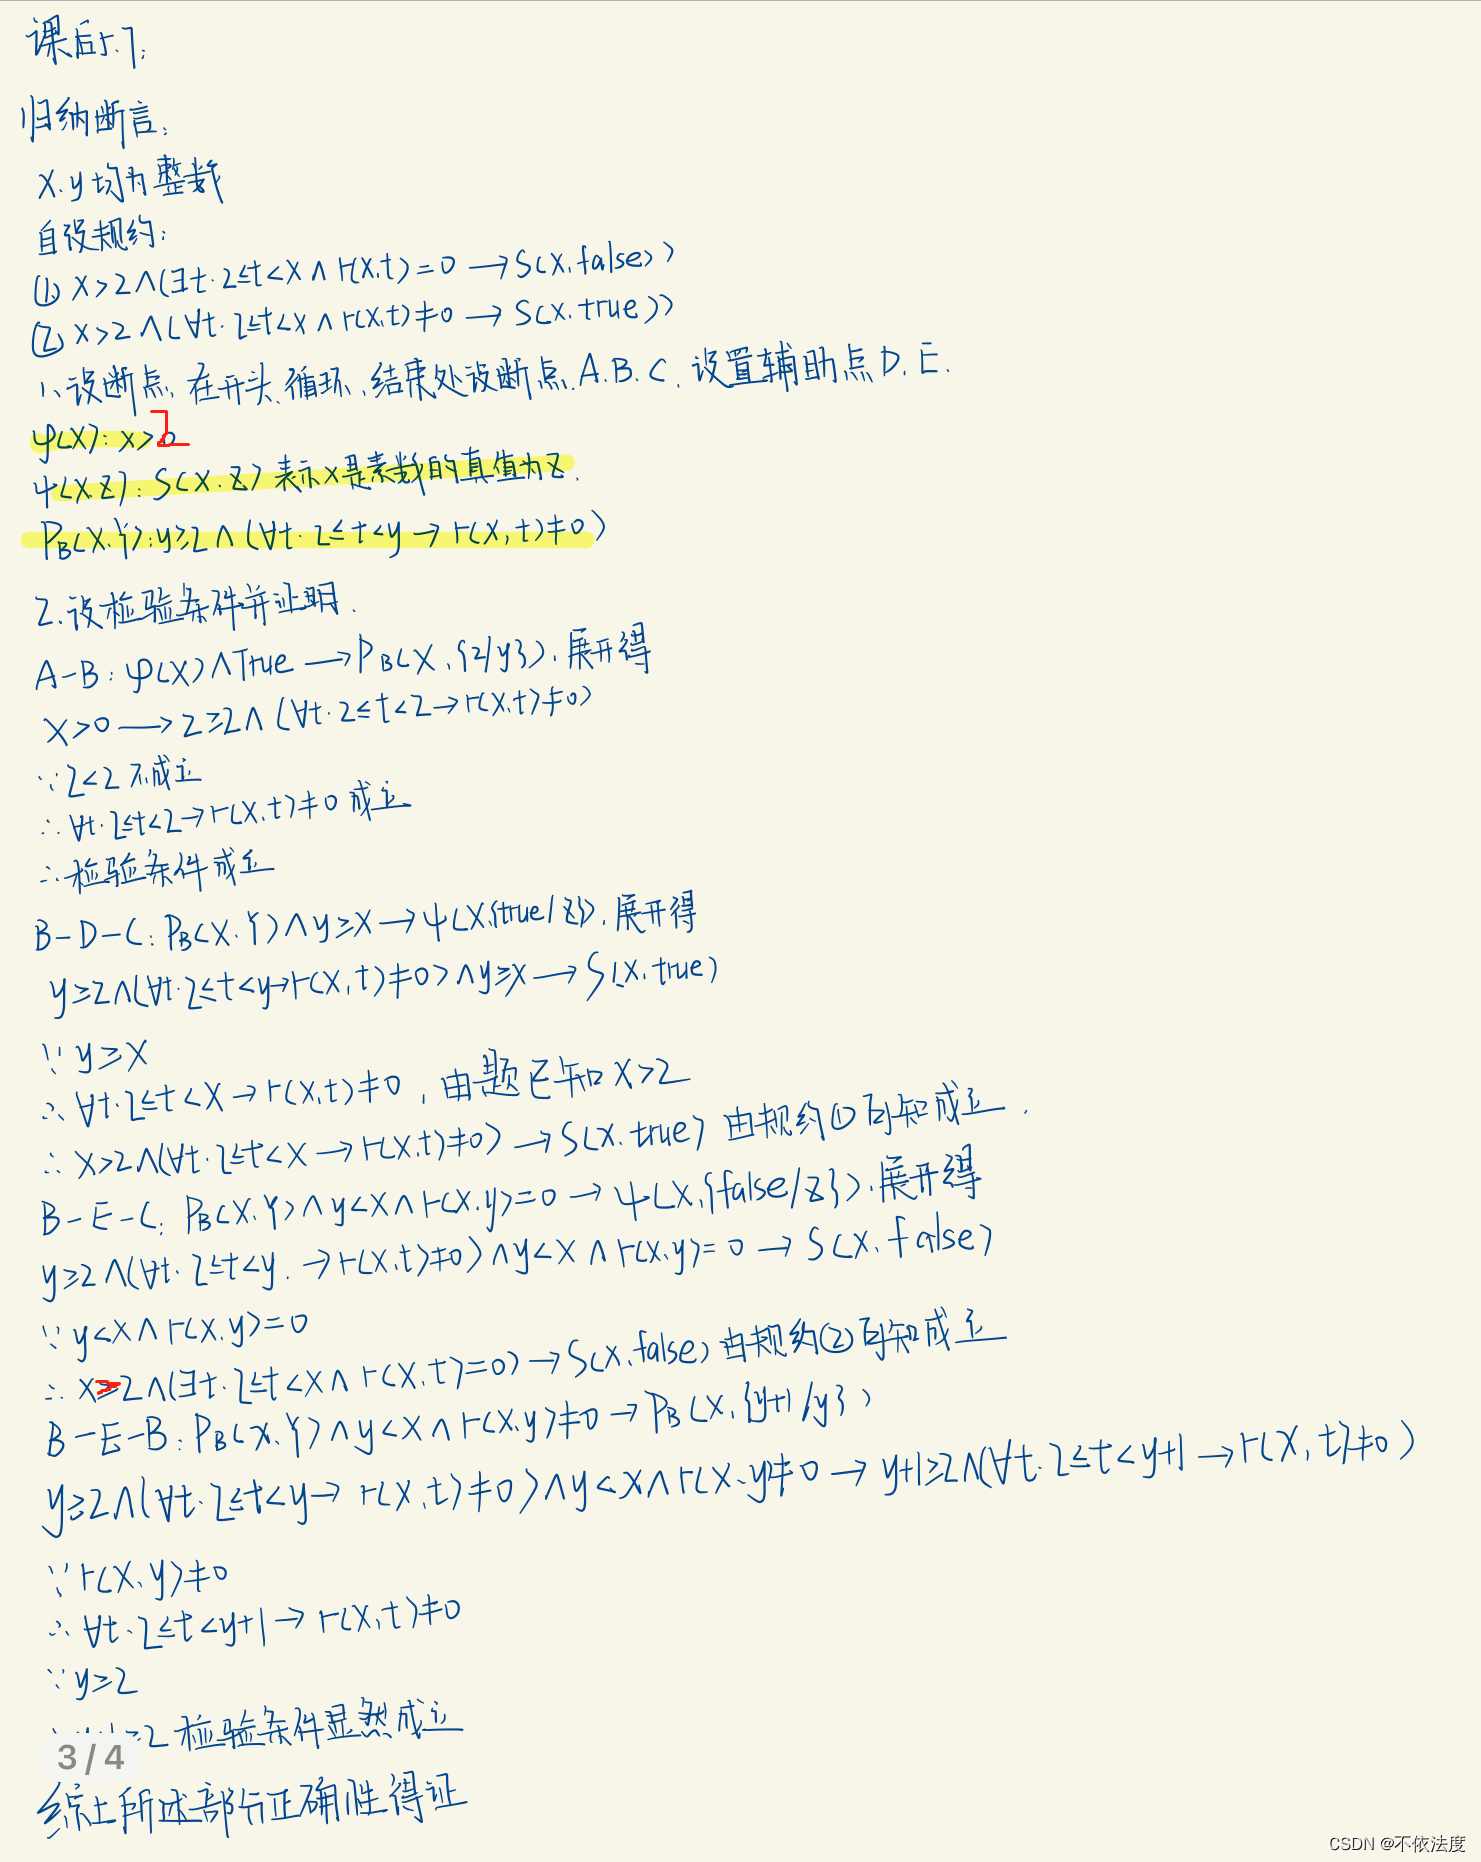 课后5.7:
归纳断言:
x.y均为整数
自设规约:
① x>2∧(∃t·2≤t<x∧r(x,t)=0→S(x,false))
② x>2∧(∀t·2≤t<x∧r(x,t)≠0→S(x,true))
1、设断点,在开头、循环、结束处设断点.A.B.C.设置辅助点D.E.
φ(x):x>2
ψ(x,z):S(x,z)表示x是素数的真值为z.
P_B(x,y):y≥2∧(∀t·2≤t<y→r(x,t)≠0)
2.设检验条件并证明.
A-B:φ(x)∧True→P_B(x,{2/y}),展开得
x>0→2≥2∧(∀t·2≤t<2→r(x,t)≠0)
∵2<2不成立
∴∀t·2≤t<2→r(x,t)≠0成立
∴检验条件成立
B-D-C:P_B(x,y)∧y≥x→ψ(x,{true/z}),展开得
y≥2∧(∀t·2≤t<y→r(x,t)≠0)∧y≥x→S(x,true)
∵y≥x
∴∀t·2≤t<x→r(x,t)≠0,由题已知x>2
∴x>2∧(∀t·2≤t<x→r(x,t)≠0)→S(x,true)由规约①可知成立.
B-E-C:P_B(x,y)∧y<x∧r(x,y)=0→ψ(x,{false/z}),展开得
y≥2∧(∀t·2≤t<y.→r(x,t)≠0)∧y<x∧r(x,y)=0→S(x,false)
∵y<x∧r(x,y)=0
∴x>2∧(∃t·2≤t<x∧r(x,t)=0)→S(x,false)由规约②可知成立
B-E-B:P_B(x,y)∧y<x∧r(x,y)≠0→P_B(x,{y+1/y})
y≥2∧(∀t·2≤t<y→r(x,t)≠0)∧y<x∧r(x,y)≠0→y+1≥2∧(∀t·2≤t<y+1→r(x,t)≠0)
∵r(x,y)≠0
∴∀t·2≤t<y+1→r(x,t)≠0
∵y≥2
≥2检验条件显然成立
3/4
综上所述部分正确性得证
CSDN @不依法度